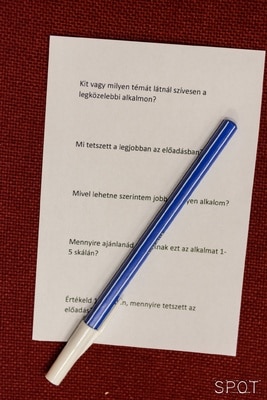 Kit vagy milyen témát látnál szívesen a
legközelebbi alkalmon?
Mi tetszett a legjobban az előadásban?
Mivel lehetne szerintem jobb alkalom?
Mennyire ezt az alkalmat 1-
5 skálán?
Értékeld mennyire tetszett az
SPOT